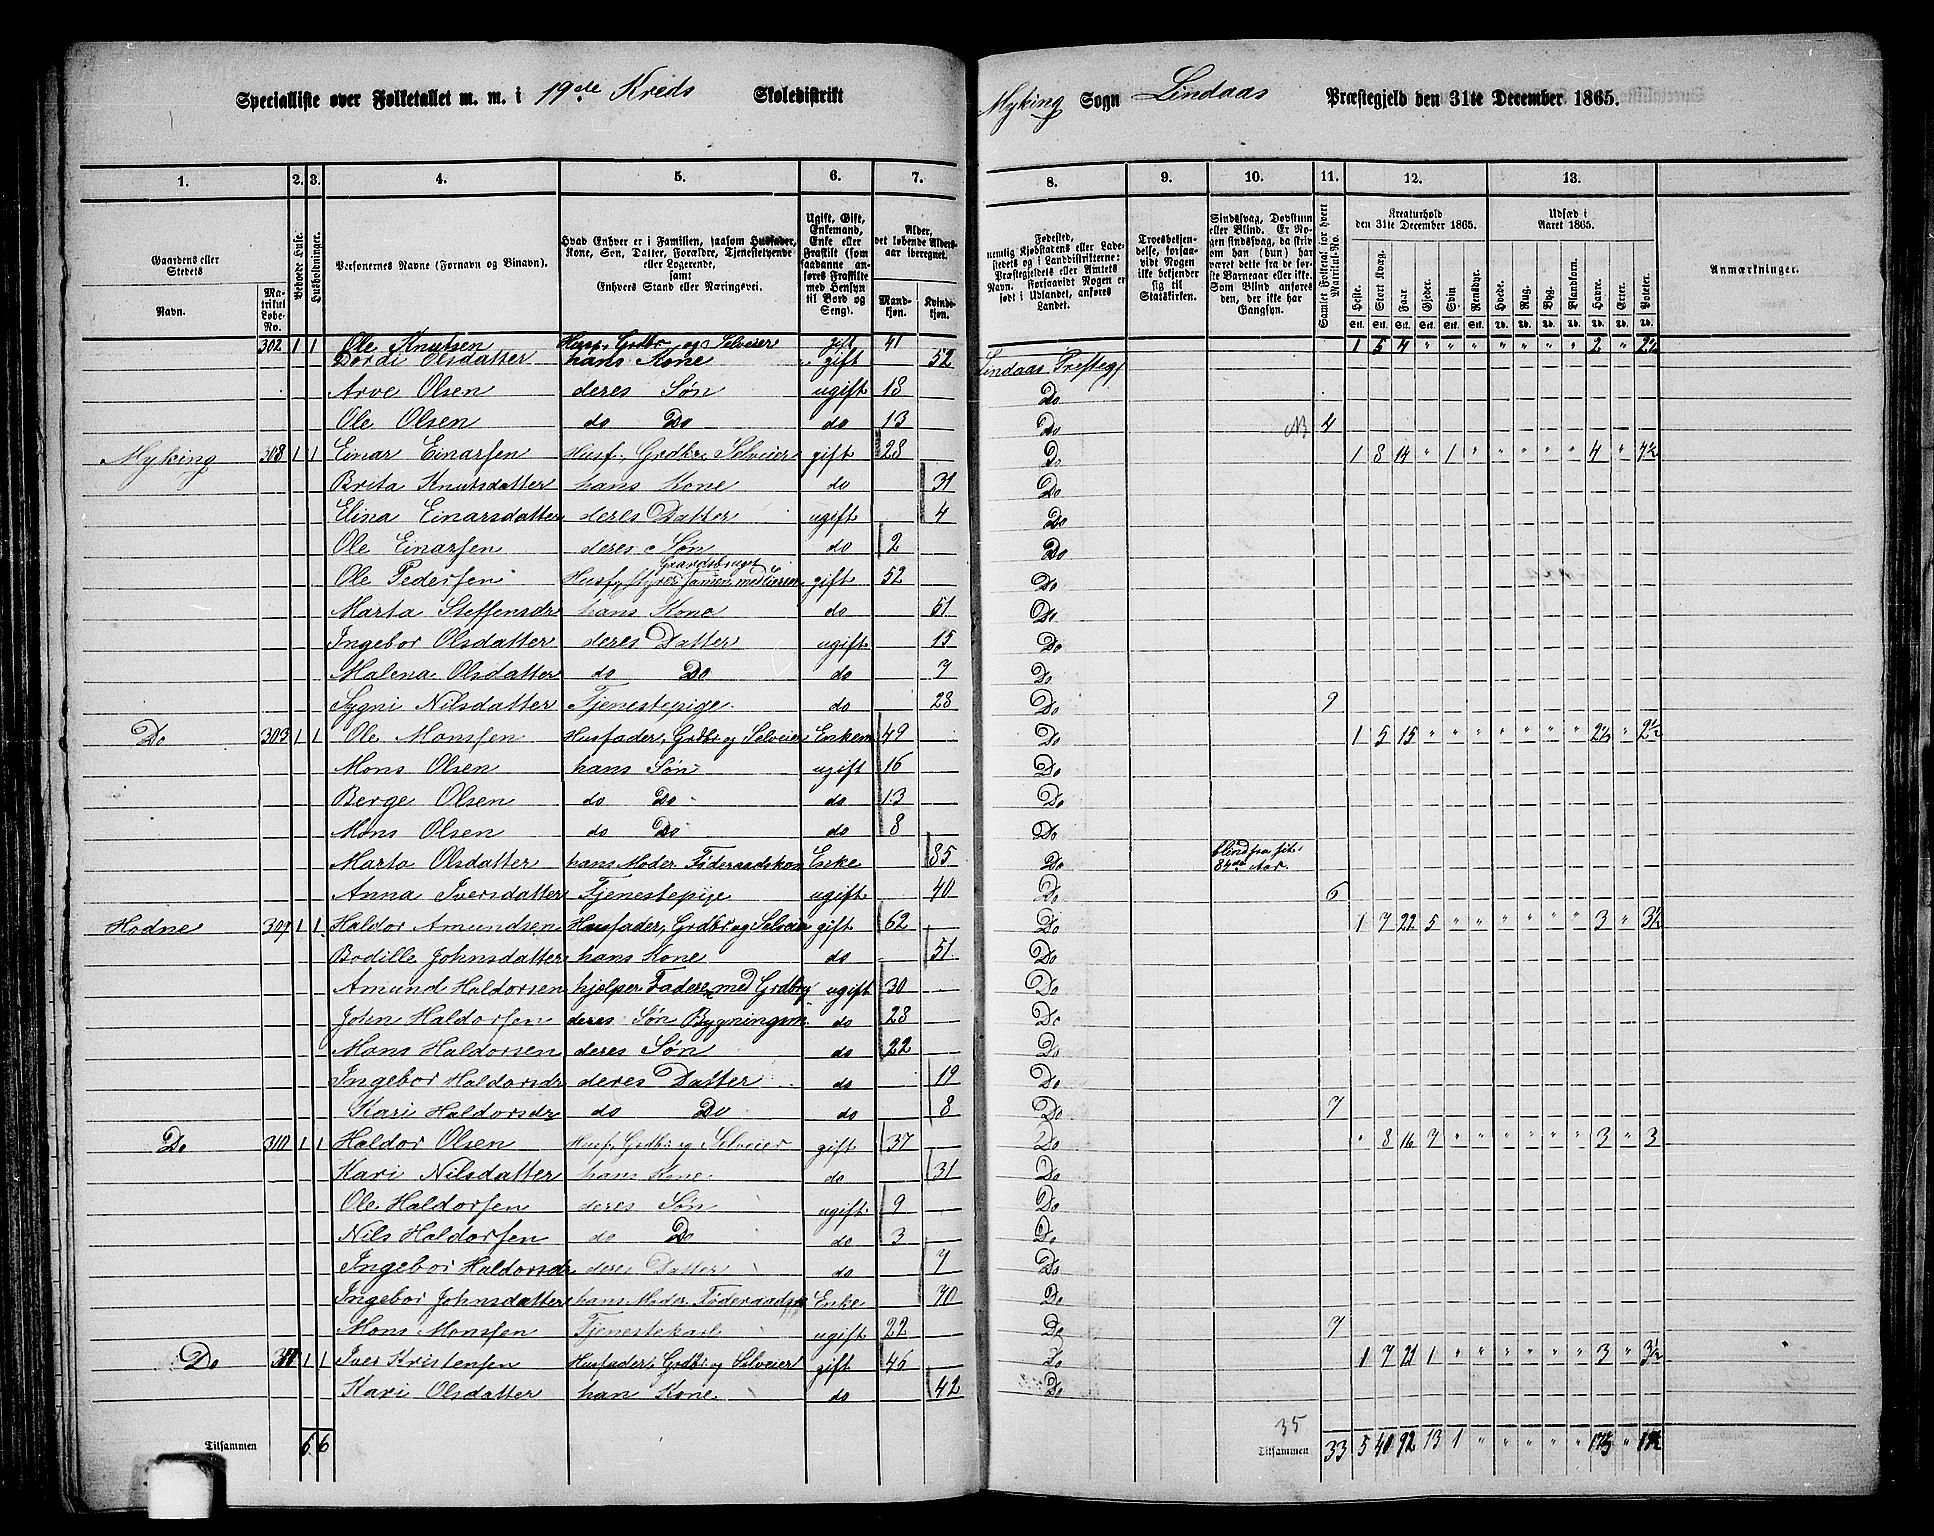 Specialliste over Folketallet m. m. i 19de Kreds Skoledistrikt Myking Sogn Lindaas Præstegjeld den 31te December 1865.
1. 2. 3. 4. 5. 6. 7. 8. 9. 10. 11. 12. 13.
Gaardens eller Stedets Navn. Matrikul Løbe-No. Beboede Huse. Husholdninger. Personernes Navne (Fornavn og Tilnavn). Hvad Enhver er i Familien, saasom Husfader, Kone, Søn, Datter, Forældre, Tjenestetyende eller Logerende, samt Enhvers Stand eller Næringsvei. Ugift, Gift, Enkemand, Enke eller Fraskilt (som saadanne anføres Fraskilte med Hensyn til Bord og Seng). Alder, det løbende Aldersaar iberegnet. Mandkjøn. Kvindekjøn.
Fødested, nemlig Kjøbstadens eller Ladestedets og i Landdistrikterne: Præstegjeldets eller Amtets Navn. Forsaavidt Nogen er født i Udlandet, anføres Landet. Troesbekjendelse, forsaavidt Nogen ikke bekjender sig til Statskirken. Sindssvag, Døvstum eller Blind. Er Nogen sindssvag, da skrives om han (hun) har været dette fra de første Barneaar eller ikke. Som Blind anføres den, der ikke har Gangsyn. Samlet Folketal for hvert Matrikul-No. Kreaturhold den 31te December 1865. Heste. Stort Kvæg. Faar. Gjeder. Svin. Rensdyr. Udsæd i Aaret 1865. Hvede. Rug. Byg. Blandkorn. Havre. Erter. Poteter. Anmærkninger.
302 1 1 Ole Knutsen Husf. Grdbr og Selveier gift 41 1 5 4 " " " " " " " 2 " 2½
Dordi Olsdatter hans Kone gift 52 Lindaas Prestegj
Arve Olsen deres Søn ugift 18 Do
Ole Olsen do Do do 13 Do 4
Myking 308 1 1 Einar Einarsen Husf. Grdbr. Selveier gift 28 Do 1 8 14 " 1 " " " " " 4 " 7½
Brita Knutsdatter hans Kone do 31 Do
Elina Einarsdatter deres Datter ugift 4 Do
Ole Einarsen deres Søn do 2 Do
Ole Pedersen Husf. gift 52 Do
Marta Steffensdr hans Kone do 51 Do
Ingebor Olsdatter deres Datter ugift 15 Do
Malena Olsdatter do Do do 7 Do
Sygni Nilsdatter Tjenestepige do 28 Do 9
Do 303 1 1 Ole Monsen Husfader, Grdbr og Selveier Enkem 49 Do 1 5 15 " " " " " " " 2½ " 2½
Mons Olsen hans Søn ugift 16 Do
Berge Olsen do Do do 13 Do
Mons Olsen do Do do 8 Do
Marta Olsdatter hans Moder Føderaadskon Enke 85 Do blind fra sit 84de Aar
Anna Iversdatter Tjenestepije ugift 40 Do 6
Hodne 309 1 1 Haldor Amundsen Husfader, Grdbr og Selveier gift 62 Do 1 7 22 5 " " " " " " 3 " 3½
Bodille Johnsdatter hans Kone do 51 Do
Amund Haldorsen hjelper Fadere med Grdbrg ugift 30 Do
John Haldorsen deres Søn Bygningsm do 28 Do
Mons Haldorsen deres Søn do 22 Do
Ingebor Haldorsdr deres Datter do 19 Do
Kari Haldorsdr do Do do 8 Do 7
Do 310 1 1 Haldor Olsen Husf. Grdbr og Selveier gift 37 Do " 8 16 7 " " " " " " 3 " 3
Kari Nilsdatter hans Kone do 31 Do
Ole Haldorsen deres Søn ugift 9 Do
Nils Haldorsen do Do do 3 Do
Ingebor Haldorsdr deres Datter do 7 Do
Ingebor Johnsdatter hans Moder Føderaads Enke 70 Do
Mons Monsen Tjenestekarl ugift 22 Do 7
Do 311 1 1 Iver Kristensen Husfader, Grdbr og Selveier gift 46 Do 1 7 21 1 " " " " " " 3 " 3½
Kari Olsdatter han Kone do 42 Do
35
Tilsammen 6 6 Tilsammen 33 5 40 92 13 1 " " " " " 17½ "